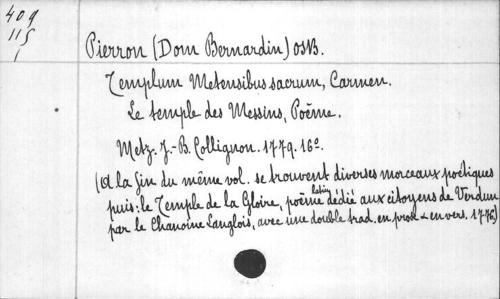 409
115
1
Pierron (Dom Bernardin) OSB.
Templum Metensibus sacrum, Carmen.
Le temple des Messins, Poëme.
Metz. J.-B. Collignon. 1779. 16º.
(a la fin du même vol. se trouvent diverses morceaux poétiques
puis: le Temple de la Gloire, poëme latin dédié aux citoyens de Verdun
par le Chanoine Langlois, avec une double trad. en prose & en vers. 1776)